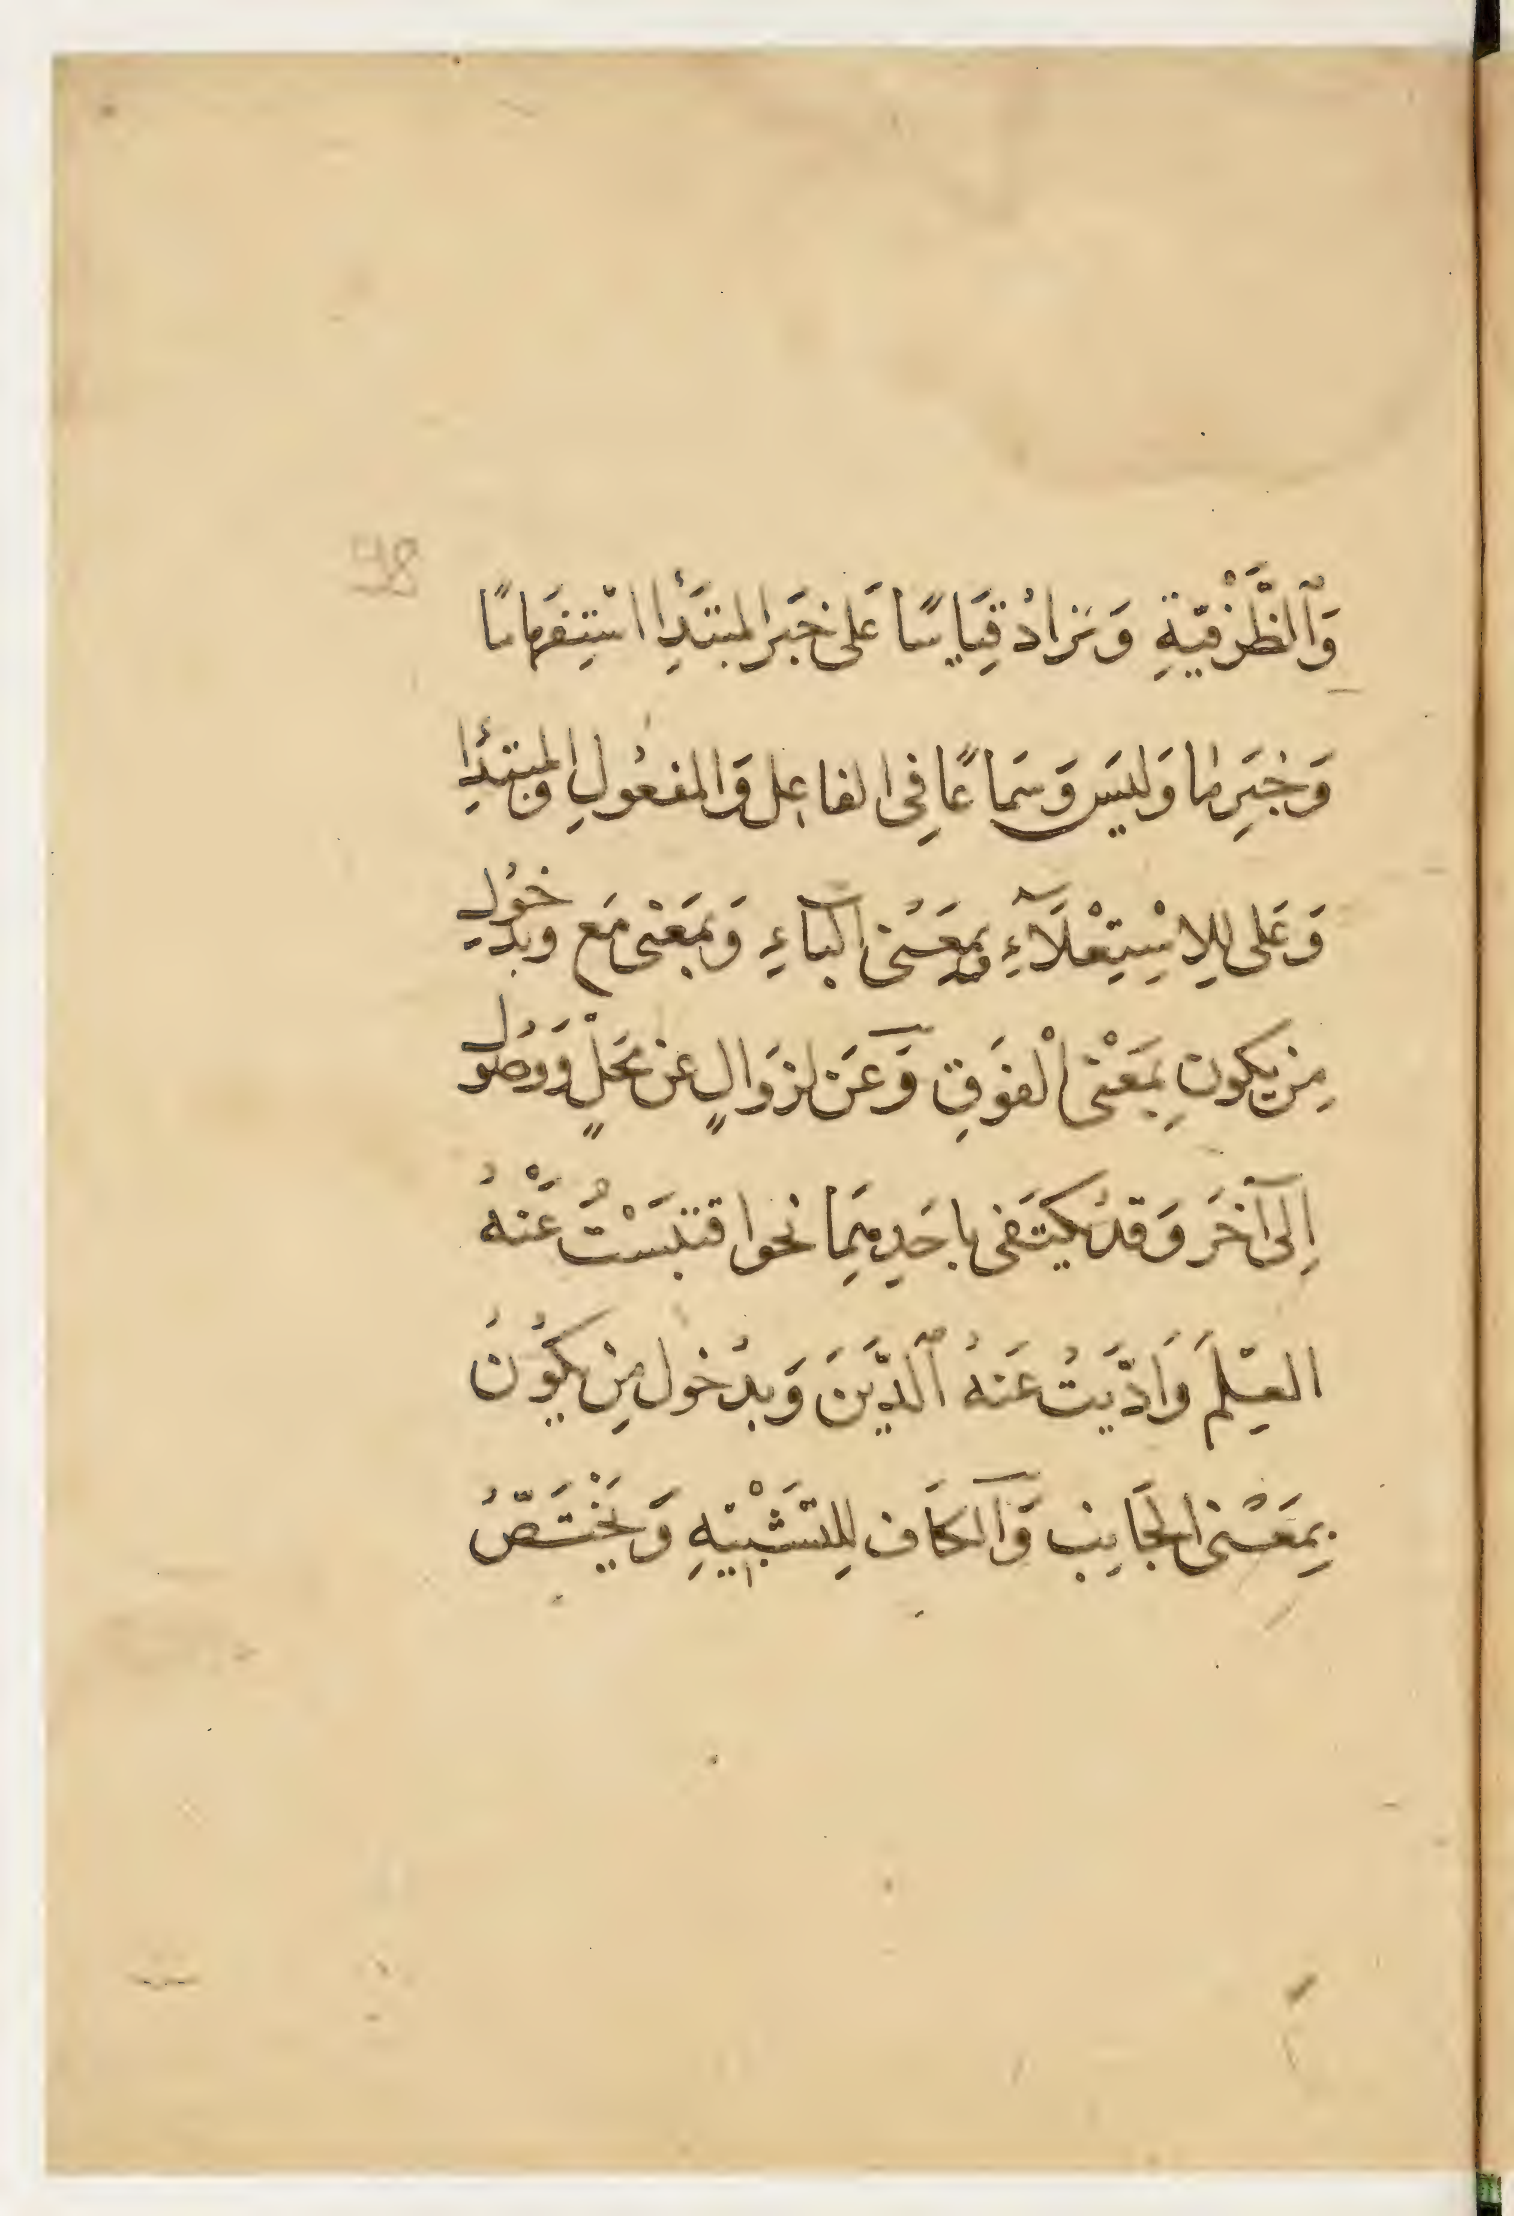 98
وَالظَّرْفِيّةِ وَيَزَادُ قِيَاسًا عَلى خَبَرِ المبتَدَأِ اسْتِفهَامًا
وَخَبَرِ ما وَلَيسَ وَسَماعًا فِي الفاعِل وَالمفعُولِ والمبتدَأِ
وَعَلى لِلاِسْتِعْلَآءِ وَبِمَعْنَى البَاءِ وَبمَعْنى مَع وبدُخُولِ
مِن يكون بِمَعْنى الْفَوَقِ وَعَن لِزَوَالٍ عَن مَحَلٍّ وَوُصُول
اِلى آخَرَ وَقد يُكتَفى باحَدِهِمَا نحو اقتَبَسْتُ عَنْهُ
العِلْمَ وَاَدّيتُ عَنهُ الَّديْنَ وَبِدُخُول مِن يَكُونُ
بِمَعْنى الجَانِب وَالكَاف لِلتَّشْبِيْهِ وَيَخْتَصُّ